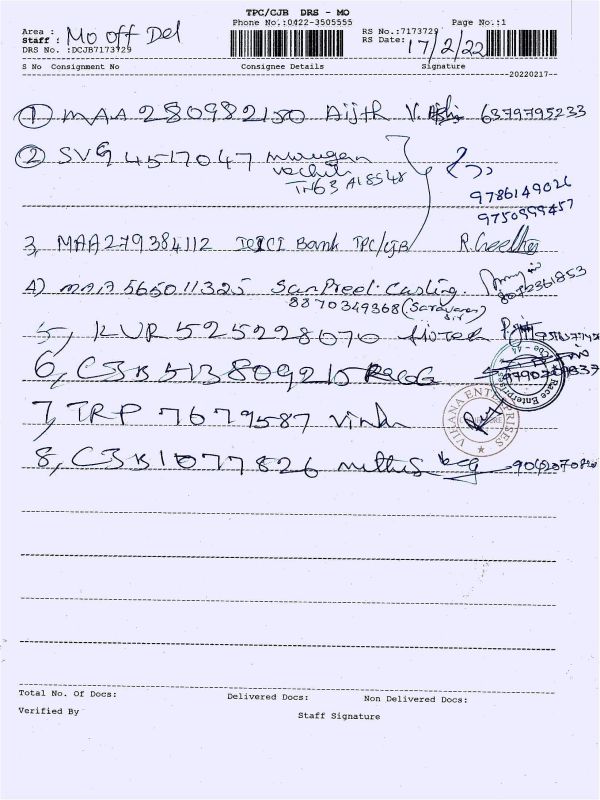 TPC/CJB DRS - MO
Phone No.:0422-3505555
Page No.:1
Area :
Staff : Mo off Del
DRS No. :DCJB7173729
RS No.:7173729
RS Date: 17/2/22
S No Consignment No Consignee Details Signature
20220217
① MAA 280982150 Aijth 6379795233
② SVG 4517047 Murugan
TN63 A18548
9786149026
9750999457
3, MAA279384112 ICICI Bank TPC/CJB R.Geetha
4) MAA 565011325 SanPreet Casting.
8870349368 (Saravanan)
5, KVR 525228070
6, CJB 513809215
7, TRP 7679587
8, CJB 1077826
VIHANA ENTERPRISES
Race Enterprises
Total No. Of Docs: Delivered Docs: Non Delivered Docs:
Verified By Staff Signature